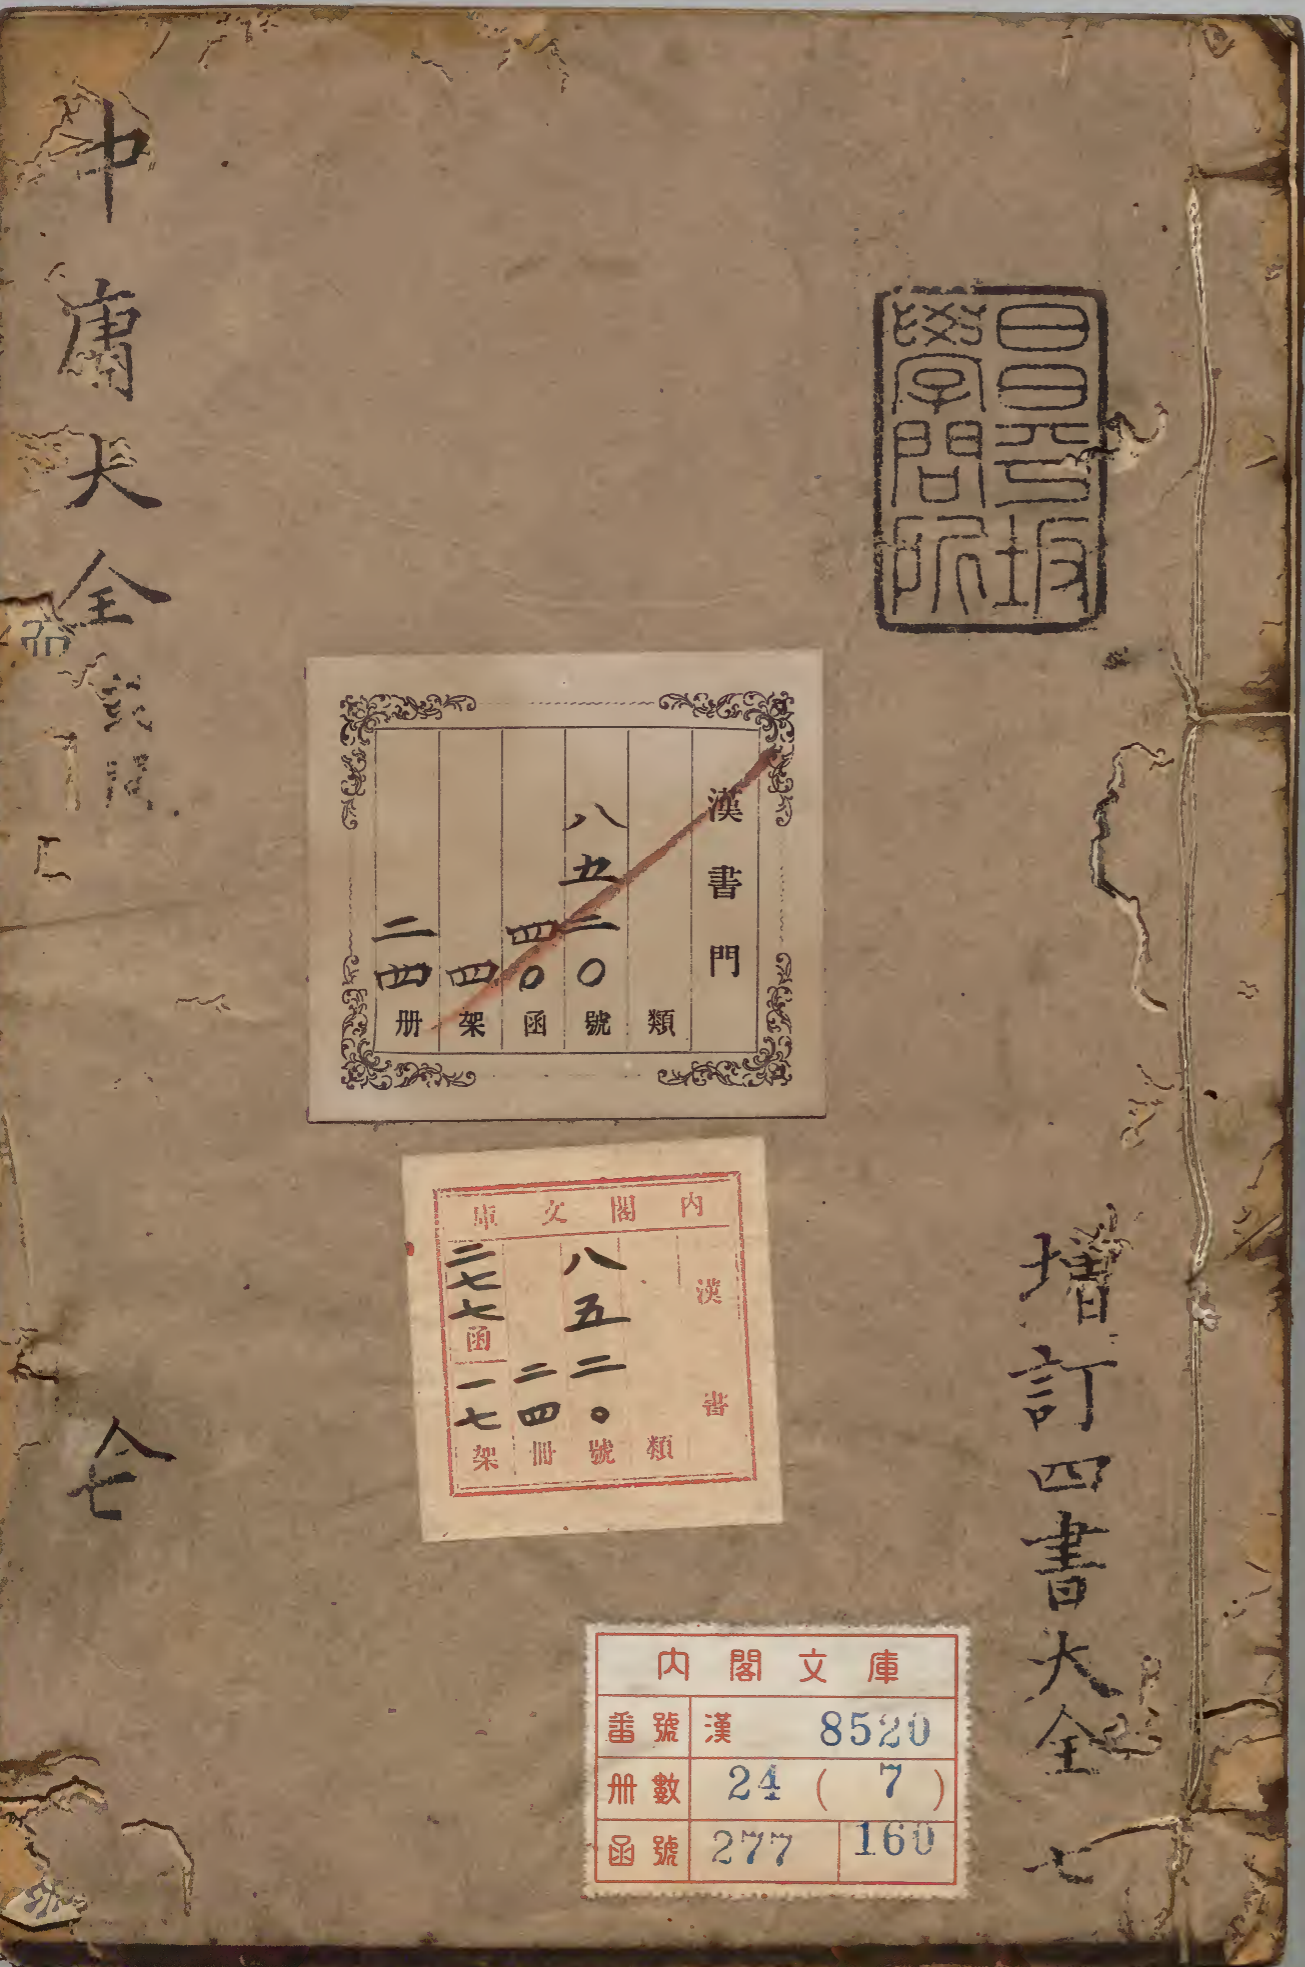 昌平坂
學問所
增訂四書大全 七
中庸大全
仝七
漢書門
類
八五二〇號
四〇函
四架
二四册
内閣文庫
漢書
類
八五二〇號
二四冊
二七七函
一七架
内閣文庫
番號 漢 8520
冊數 24 ( 7 )
函號 277 160